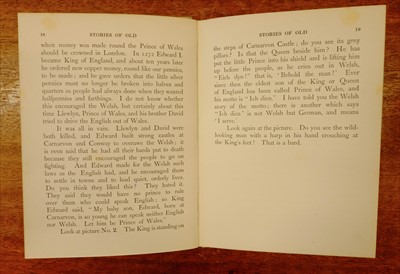 18
STORIES OF OLD
when money was made round the Prince of Wales
should be crowned in London. In 1272 Edward I.
became King of England, and about ten years later
he ordered new copper money, round like our pennies,
to be made; and he gave orders that the silver
pennies must no longer be broken into halves and
quarters as people had always done when they wanted
halfpennies and farthings. I do not know whether
this encouraged the Welsh, but certainly about this
time Llewlyn, Prince of Wales, and his brother David
tried to drive the English out of Wales.
It was all in vain. Llewlyn and David were
both killed; and Edward built strong castles at
Carnarvon and Conway to overawe the Welsh; it
is even said that he had all their bards put to death
because they still encouraged the people to go on
fighting. And Edward made for the Welsh such
laws as the English had, and he encouraged them
to settle in towns and to lead quiet, orderly lives.
Do you think they liked this? They hated it.
They said they would have no prince to rule
over them who could speak English; so King
Edward said, "My baby son, Edward, born at
Carnarvon, is so young he can speak neither English
nor Welsh. Let him be Prince of Wales."
Look at picture No. 2. The King is standing on
STORIES OF OLD
19
the steps of Carnarvon Castle; do you see its grey
pillars? Is that the Queen beside him? He has
put the little Prince into his shield and is lifting him
up before the people, as he cries out in Welsh,
"Eich dyn!" that is, 'Behold the man!' Ever
since then the eldest son of the King or Queen
of England has been called Prince of Wales, and
his motto is "Ich dien." I have told you the Welsh
story of the motto; there is another which says
"Ich dien" is not Welsh but German, and means
'I serve.'
Look again at the picture. Do you see the wild-
looking man with a harp in his hand crouching at
the King's feet? That is a bard.